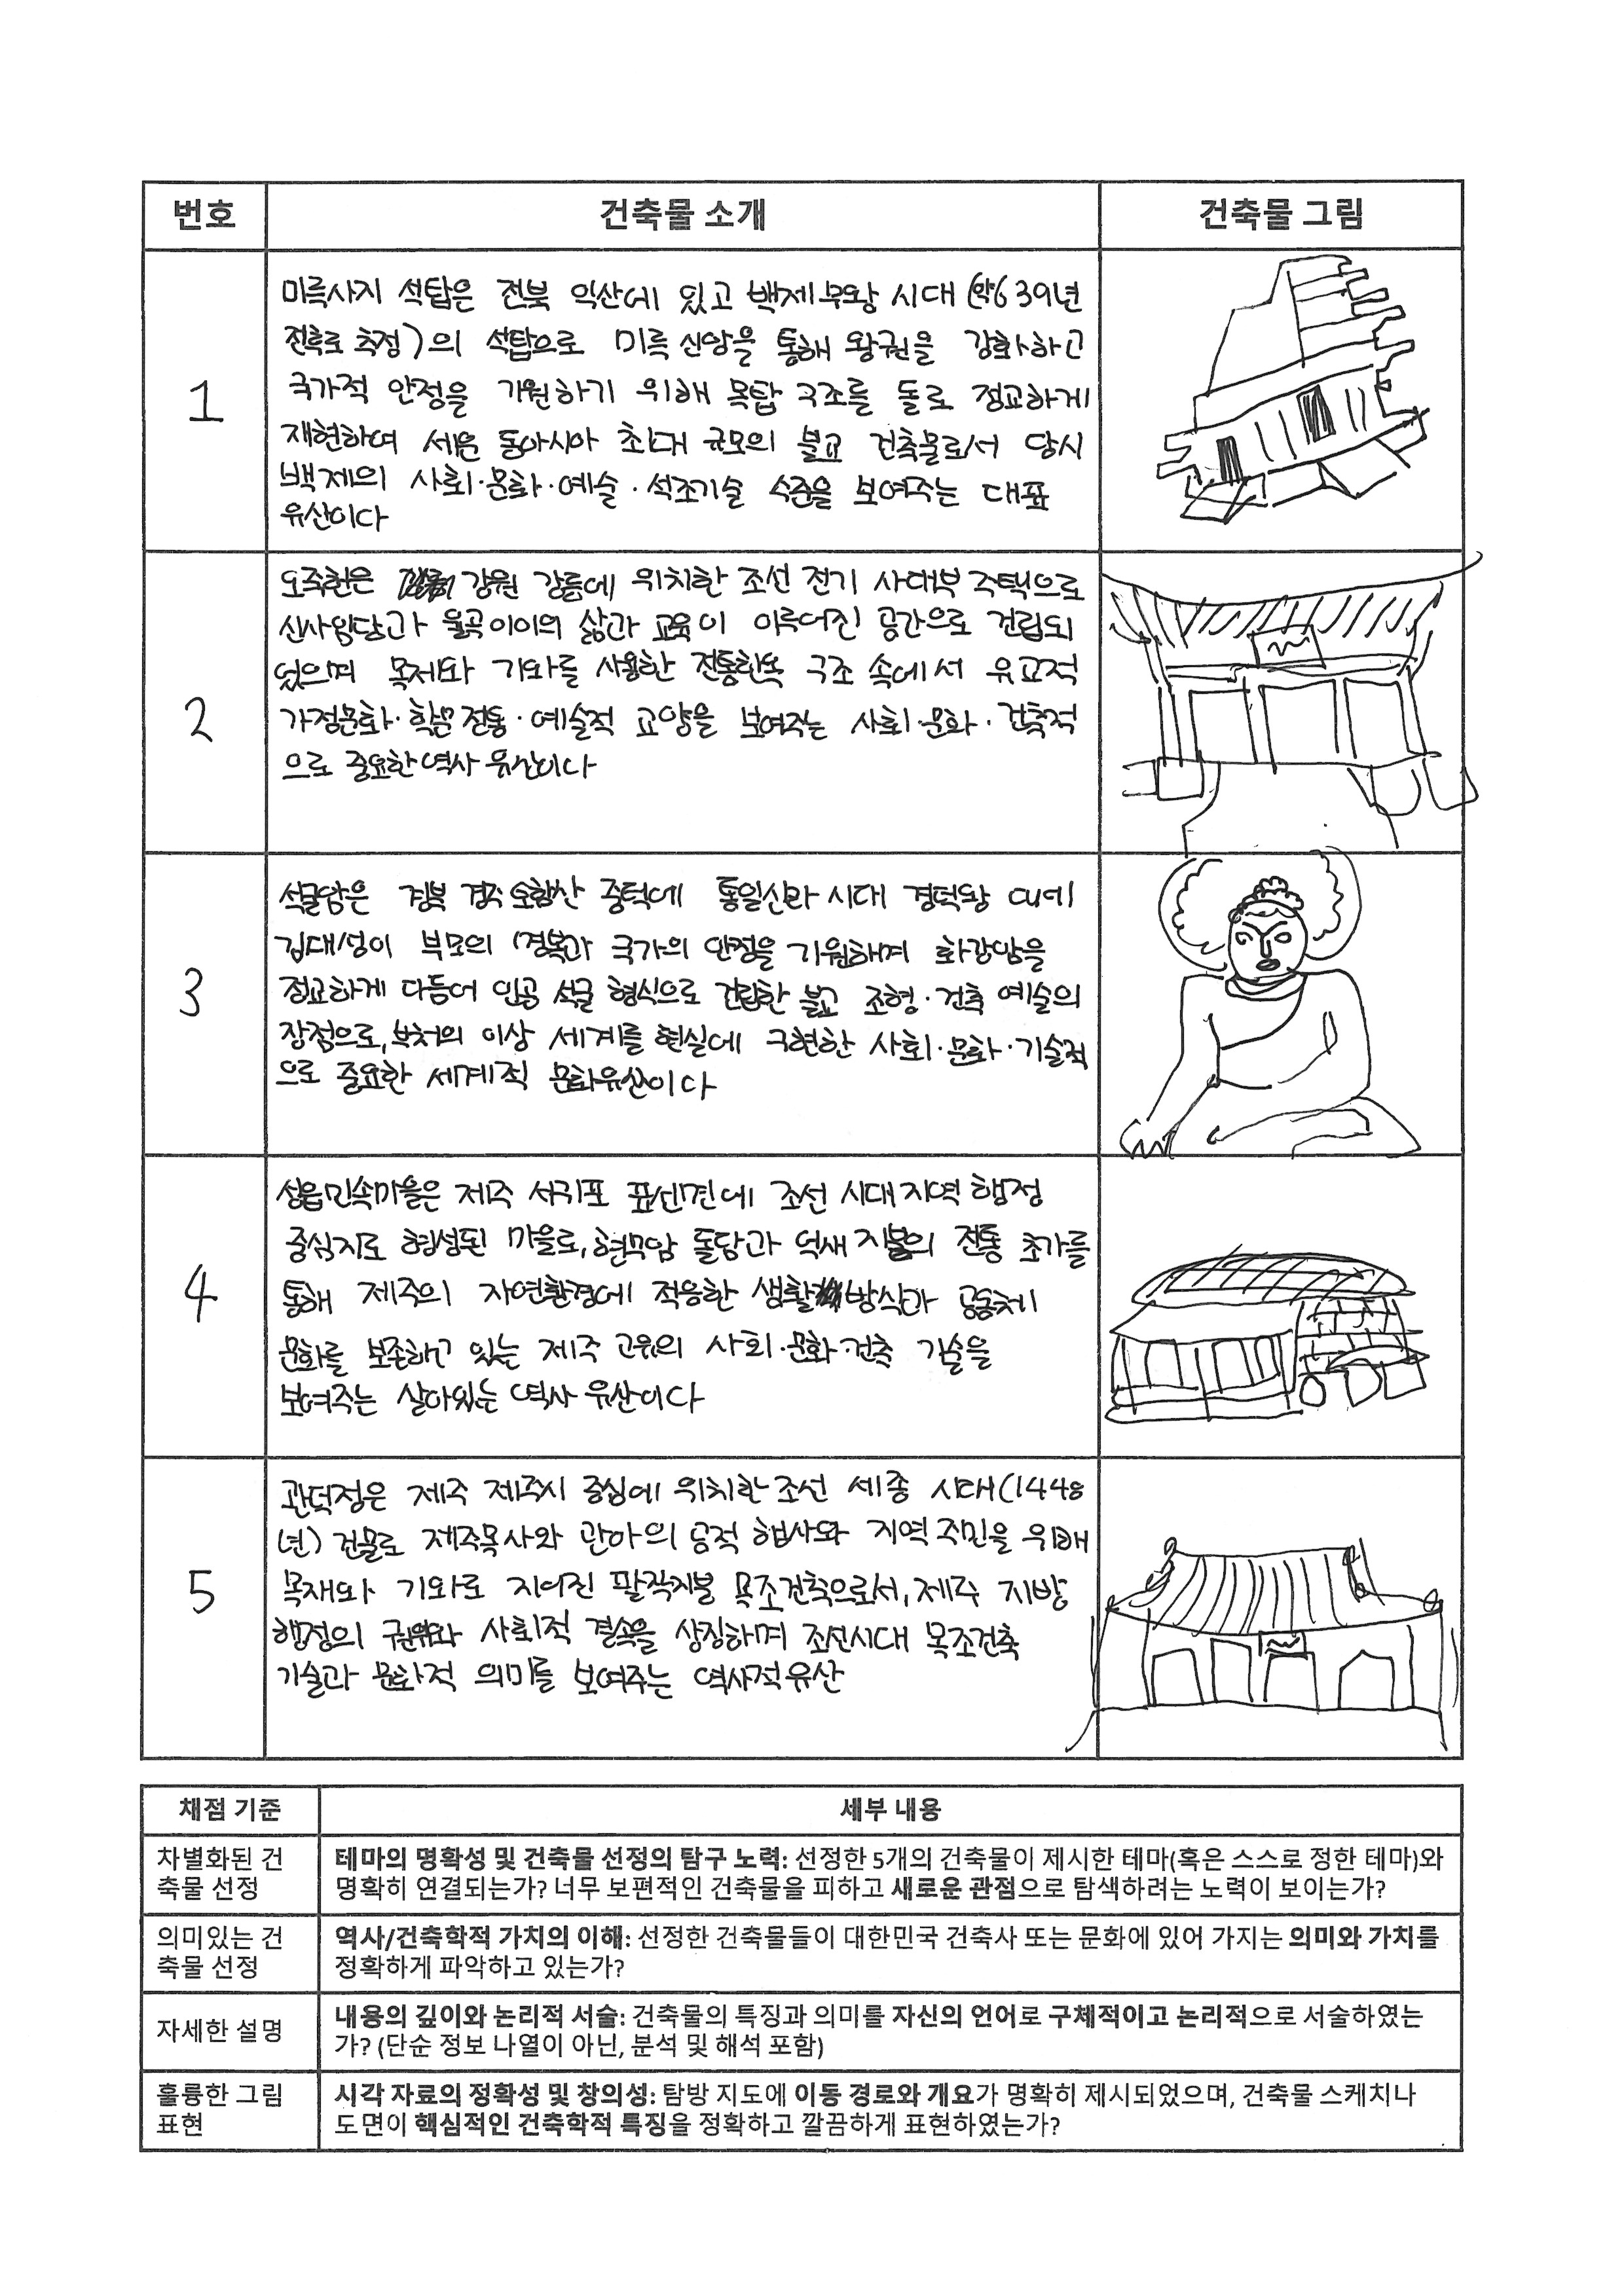 번호
건축물 소개
건축물 그림
1
미륵사지 석탑은 전북 익산에 있고 백제 무왕 시대 (약639년
전후로 추정)의 석탑으로 미륵 신앙을 통해 왕권을 강화하고
국가적 안정을 기원하기 위해 목탑 구조를 돌로 정교하게
재현하여 세운 동아시아 최대 규모의 불교 건축물로서 당시
백제의 사회·문화·예술·석조기술 수준을 보여주는 대표
유산이다
2
오죽헌은 강원 강릉에 위치한 조선 전기 사대부 주택으로
신사임당과 율곡 이이의 삶과 교육이 이루어진 공간으로 건립되
었으며 목재와 기와를 사용한 전통한옥 구조 속에서 유교적
가정문화·학문 전통·예술적 교양을 보여주는 사회·문화·건축적
으로 중요한 역사 유산이다
3
석굴암은 경북 경주 토함산 중턱에 통일신라 시대 경덕왕 때에
김대성이 부모의 명복과 국가의 안정을 기원하며 화강암을
정교하게 다듬어 인공 석굴 형식으로 건립한 불교 조형·건축 예술의
장점으로, 부처의 이상 세계를 현실에 구현한 사회·문화·기술적
으로 중요한 세계적 문화유산이다
4
성읍민속마을은 제주 서귀포 표선면에 조선 시대 지역 행정
중심지로 형성된 마을로, 현무암 돌담과 억새 지붕의 전통 초가를
통해 제주의 자연환경에 적응한 생활 방식과 공동체
문화를 보존하고 있는 제주 고유의 사회·문화·건축 기술을
보여주는 살아있는 역사 유산이다
5
관덕정은 제주 제주시 중심에 위치한 조선 세종 시대(1448
년) 건물로 제주목사와 관아의 공적 행사와 지역 주민을 위해
목재와 기와로 지어진 팔작지붕 목조건축으로서, 제주 지방
행정의 권위와 사회적 결속을 상징하며 조선시대 목조건축
기술과 문화적 의미를 보여주는 역사적 유산
채점 기준
세부 내용
차별화된 건
축물 선정
테마의 명확성 및 건축물 선정의 탐구 노력: 선정한 5개의 건축물이 제시한 테마(혹은 스스로 정한 테마)와
명확히 연결되는가? 너무 보편적인 건축물을 피하고 새로운 관점으로 탐색하려는 노력이 보이는가?
의미있는 건
축물 선정
역사/건축학적 가치의 이해: 선정한 건축물들이 대한민국 건축사 또는 문화에 있어 가지는 의미와 가치를
정확하게 파악하고 있는가?
자세한 설명
내용의 깊이와 논리적 서술: 건축물의 특징과 의미를 자신의 언어로 구체적이고 논리적으로 서술하였는
가? (단순 정보 나열이 아닌, 분석 및 해석 포함)
훌륭한 그림
표현
시각 자료의 정확성 및 창의성: 탐방 지도에 이동 경로와 개요가 명확히 제시되었으며, 건축물 스케치나
도면이 핵심적인 건축학적 특징을 정확하고 깔끔하게 표현하였는가?